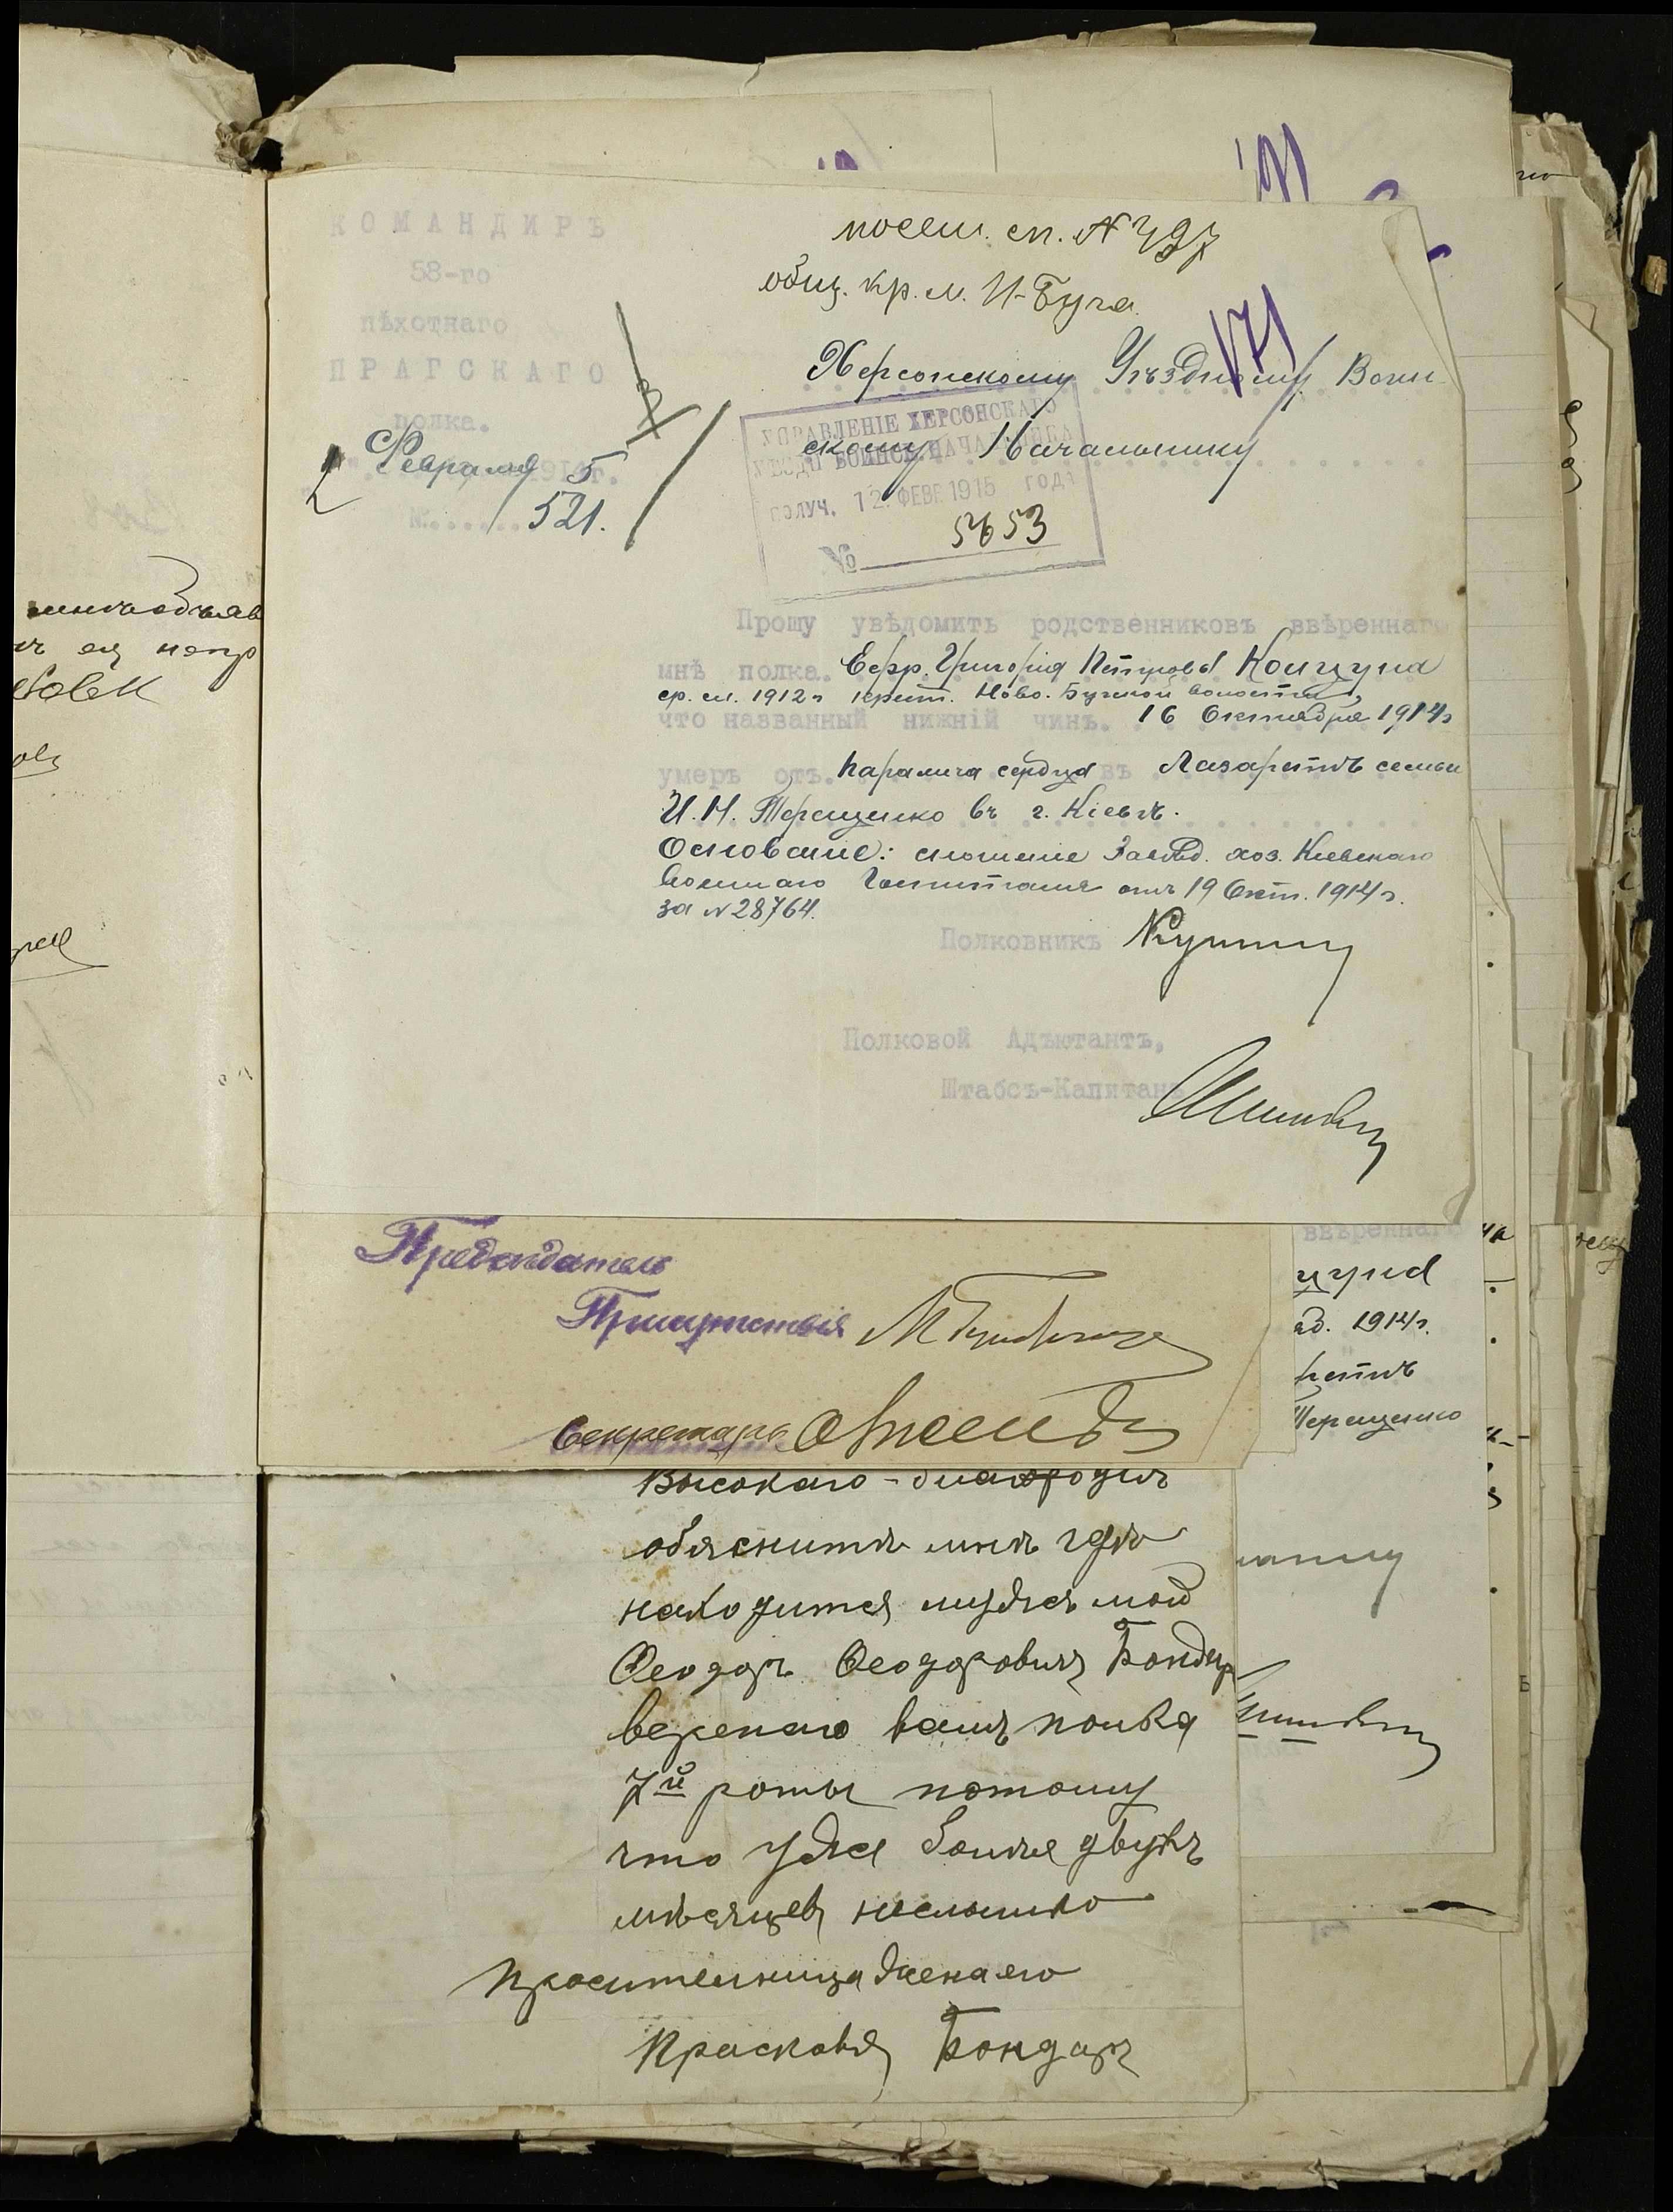 КОМАНДИРЪ
58-го
пѣхотнаго
ПРАГСКАГО
полка.
Февраля 5 191 г.
№ 521.
посем. сп. №
общ. кр. м. Н-Буга.
171
Херсонскому Уѣздному Воин
скому Начальнику
УПРАВЛЕНІЕ ХЕРСОНСКАГО
УѢЗДН ВОИНСК. НАЧАЛЬНИКА
ПОЛУЧ. 12. ФЕВР 1915 ГОДА
№ 5653
Прошу увѣдомить родственниковъ ввѣреннаго
мнѣ полка. Ефр. Григорія Петрова Концура
ср. сл. 1912 г крест. Ново. Бугской волости,
что названный нижній чинъ. 16 Октября 1914 г
умеръ отъ. паралича сердца въ Лазаретѣ семьи
И. Н. Терещенко въ г. Кіевѣ.
Основаніе: сношеніе Завѣд. хоз. Кіевскаго
военнаго Госпиталя отъ 19 Окт. 1914 г.
за № 28764.
Полковникъ
Полковой Адъютантъ,
Штабсъ-Капитанъ
Предсѣдатель
Присутствія
Секретарь
ввѣреннаг
1914 г.
ретѣ
Терещенко
Высокаго-благородия
обяснить мнѣ гдѣ
находится мужъ мой
Ѳеодоръ Ѳеодоровичъ Бондар
веренаго вамъ полка
7й роты потому
что уже более двухъ
мѣсяцев неслышно
просительница жена его
Прасковія Бондарь